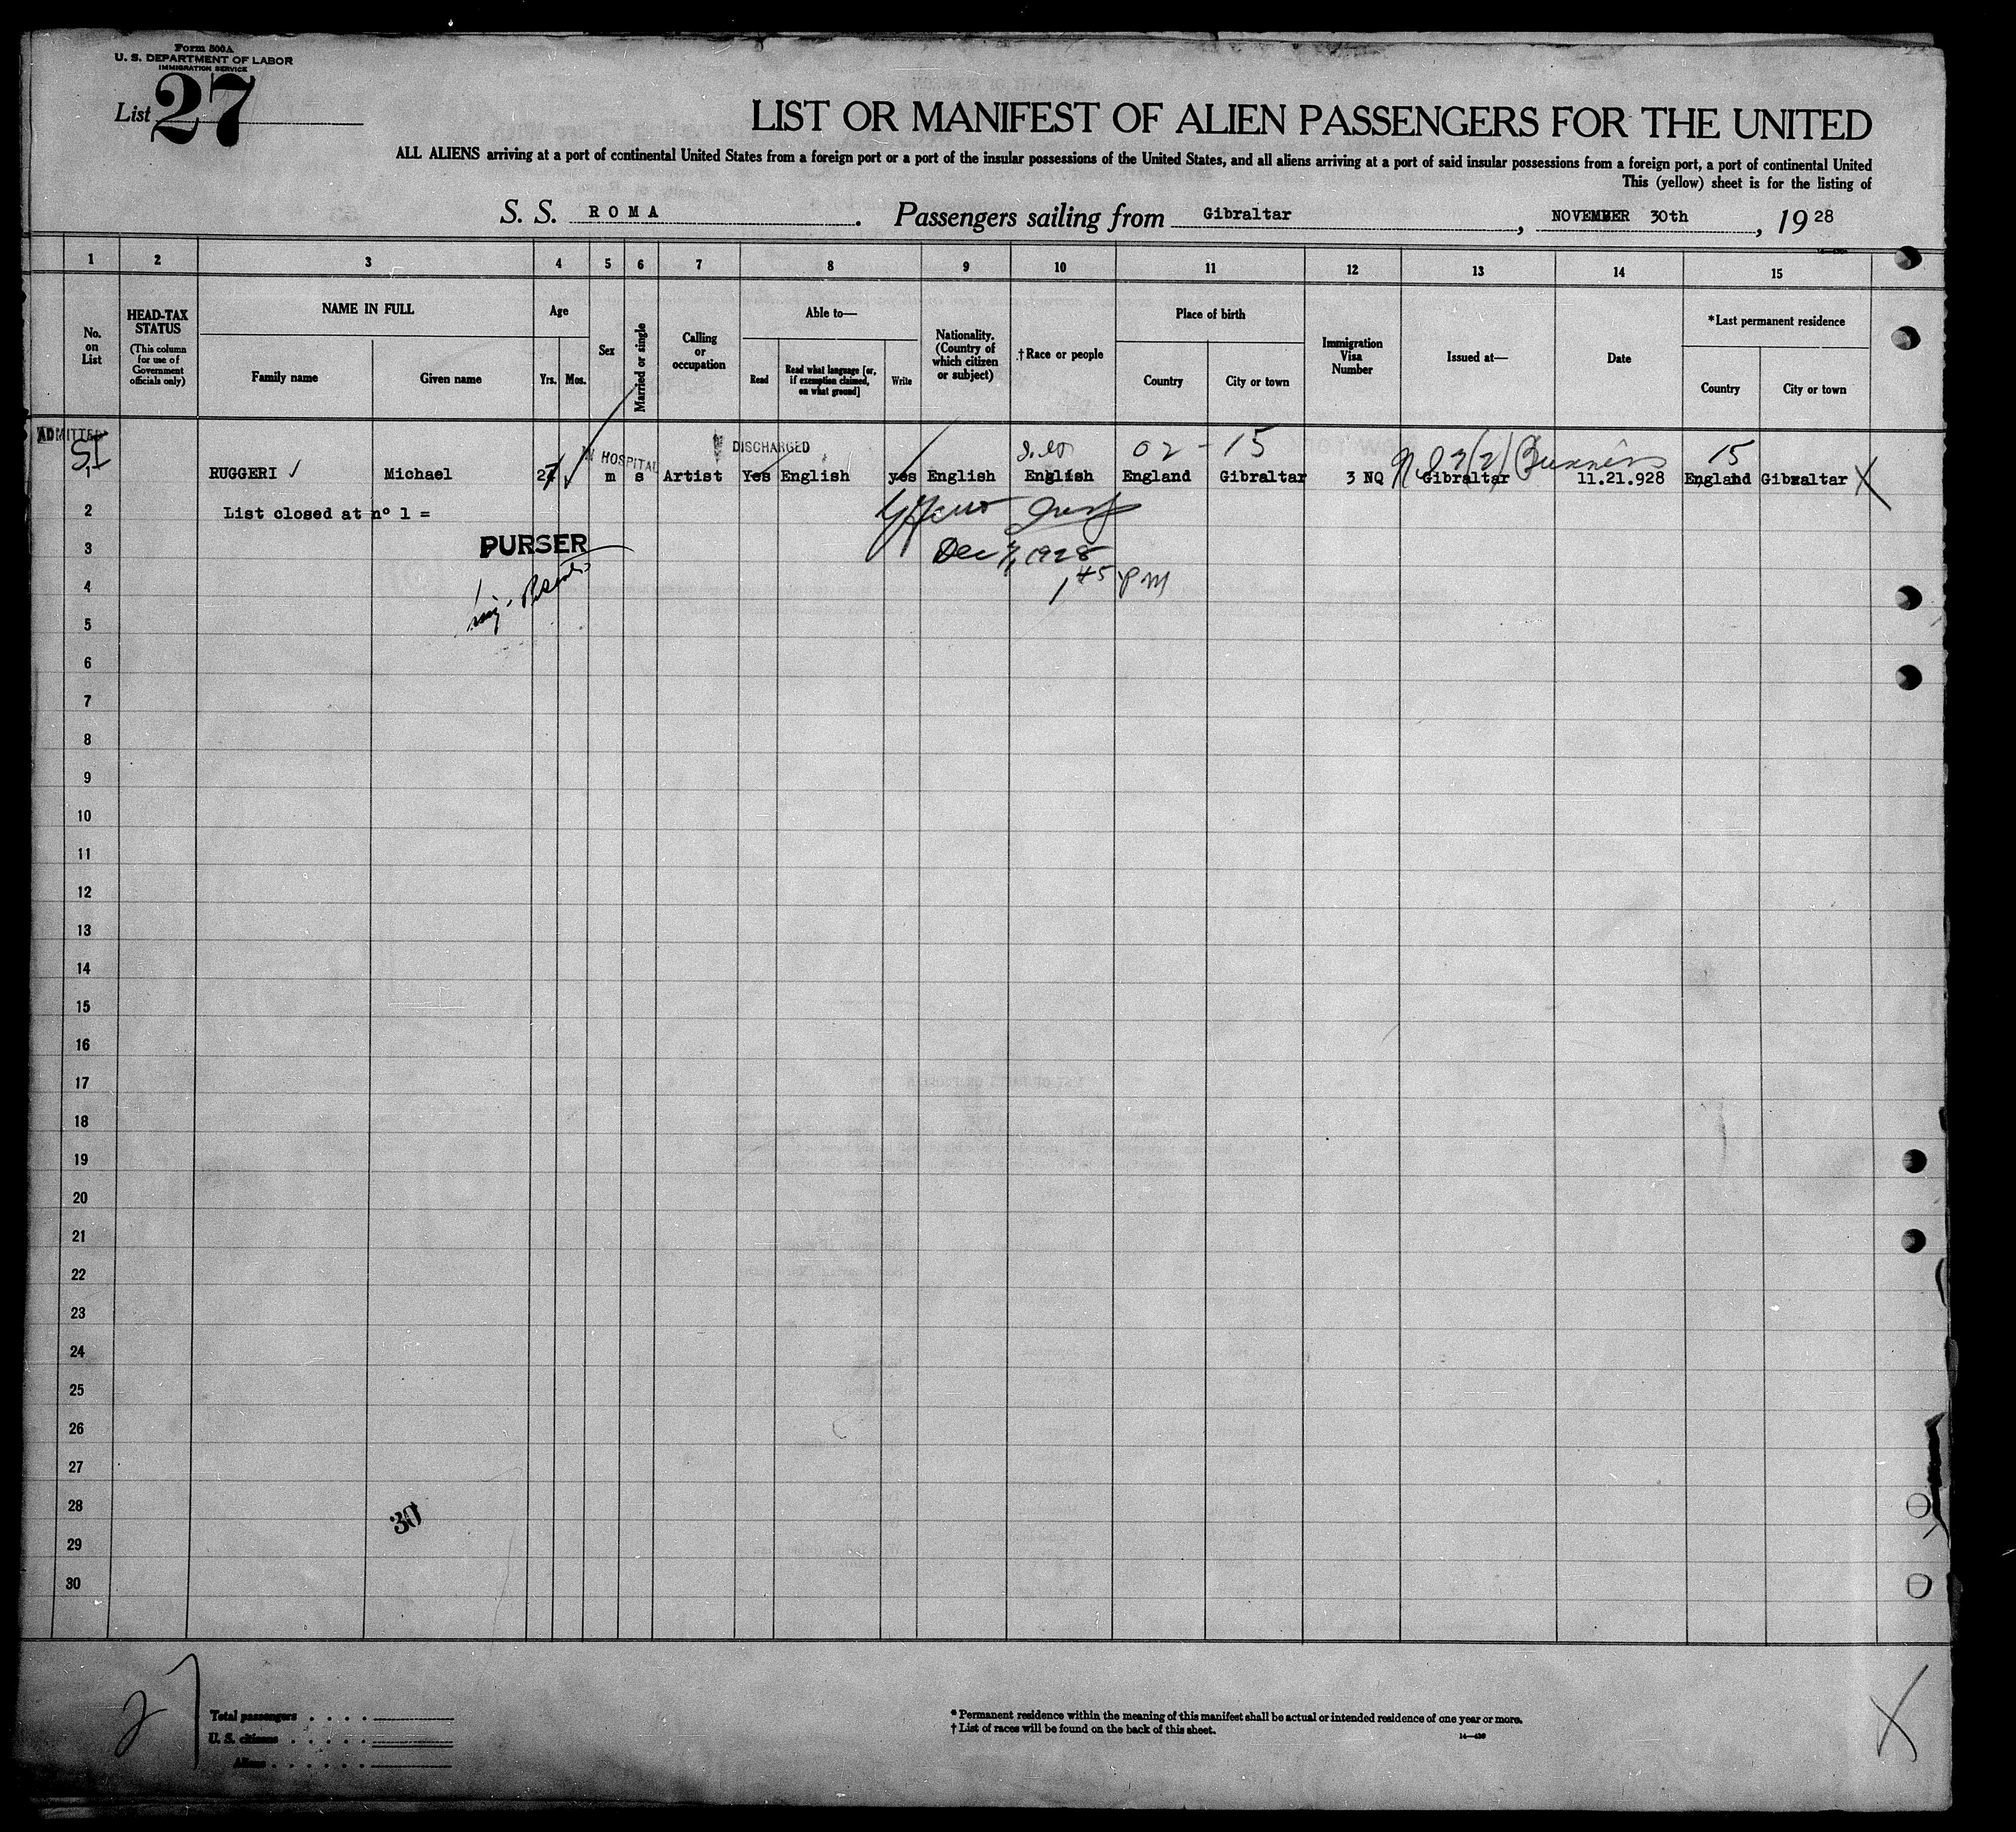 Form 500A
U. S. DEPARTMENT OF LABOR
IMMIGRATION SERVICE
List 27
LIST OR MANIFEST OF ALIEN PASSENGERS FOR THE UNITED
ALL ALIENS arriving at a port of continental United States from a foreign port or a port of the insular possessions of the United States, and all aliens arriving at a port of said insular possessions from a foreign port, a port of continental United
This (yellow) sheet is for the listing of
S. S. ROMA. Passengers sailing from Gibraltar, NOVEMBER 30th, 1928
1 2 3 4 5 6 7 8 9 10 11 12 13 14 15
No. on List
HEAD-TAX STATUS
(This column for use of Government officials only)
NAME IN FULL
Family name
Given name
Age
Yrs. Mos.
Sex
Married or single
Calling or occupation
Able to—
Read
Read what language [or, if exemption claimed, on what ground]
Write
Nationality. (Country of which citizen or subject)
†Race or people
Place of birth
Country
City or town
Immigration Visa Number
Issued at—
Date
*Last permanent residence
Country
City or town
ADMITTED
SI
IN HOSPITAL
DISCHARGED
02 - 15
15
1 RUGGERI ✓ Michael m s Artist Yes English yes English English England Gibraltar 3 NQ Gibraltar 11.21.928 England Gibraltar X
2 List closed at n° 1 =
3 PURSER
Dec 7, 1928
4
1 45 PM
5
6
7
8
9
10
11
12
13
14
15
16
17
18
19
20
21
22
23
24
25
26
27
28
30
29
30
27
Total passengers . . . .
U. S. citizens . . . . .
Aliens . . . . . .
* Permanent residence within the meaning of this manifest shall be actual or intended residence of one year or more.
† List of races will be found on the back of this sheet.
14—430
X